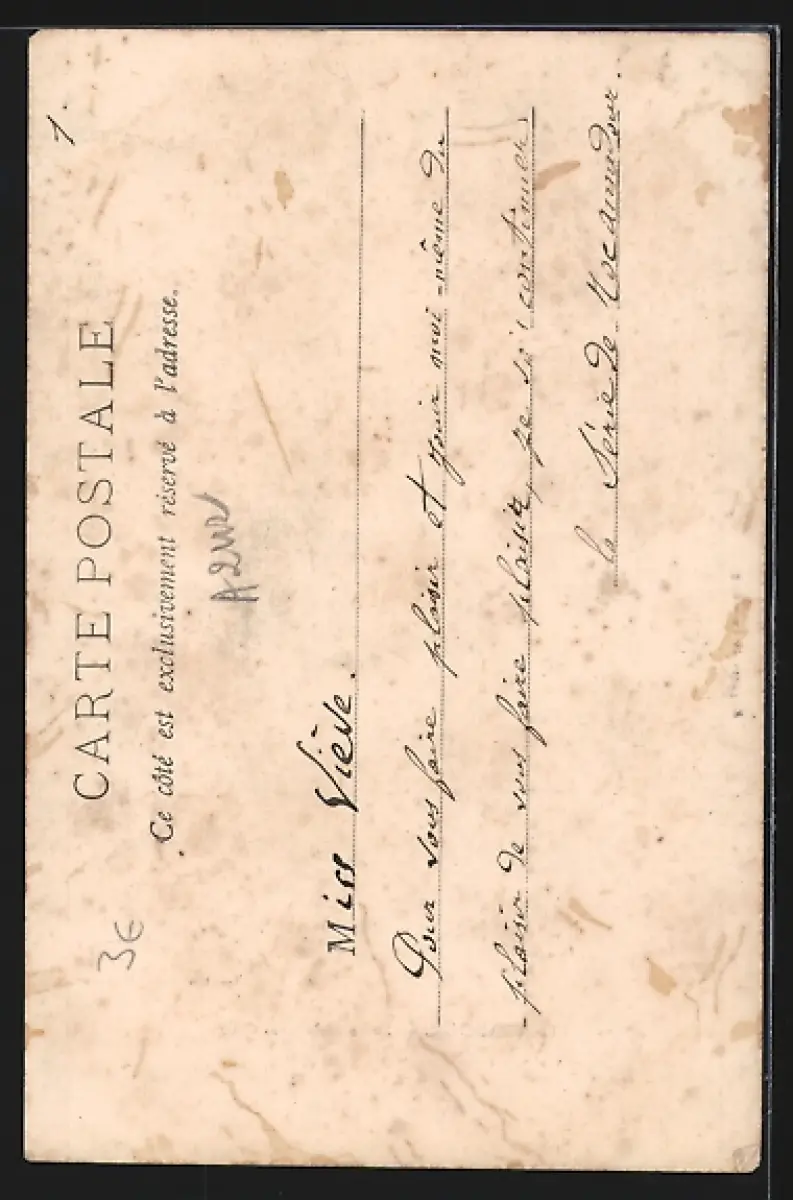 1.
CARTE POSTALE
Ce côté est exclusivement réservé à l'adresse.
3€
Miss Viève.
Pour vous faire plaisir et jouir moi-même du
plaisir de vous faire plaisir, je continuer
la Série de Rocamadour.